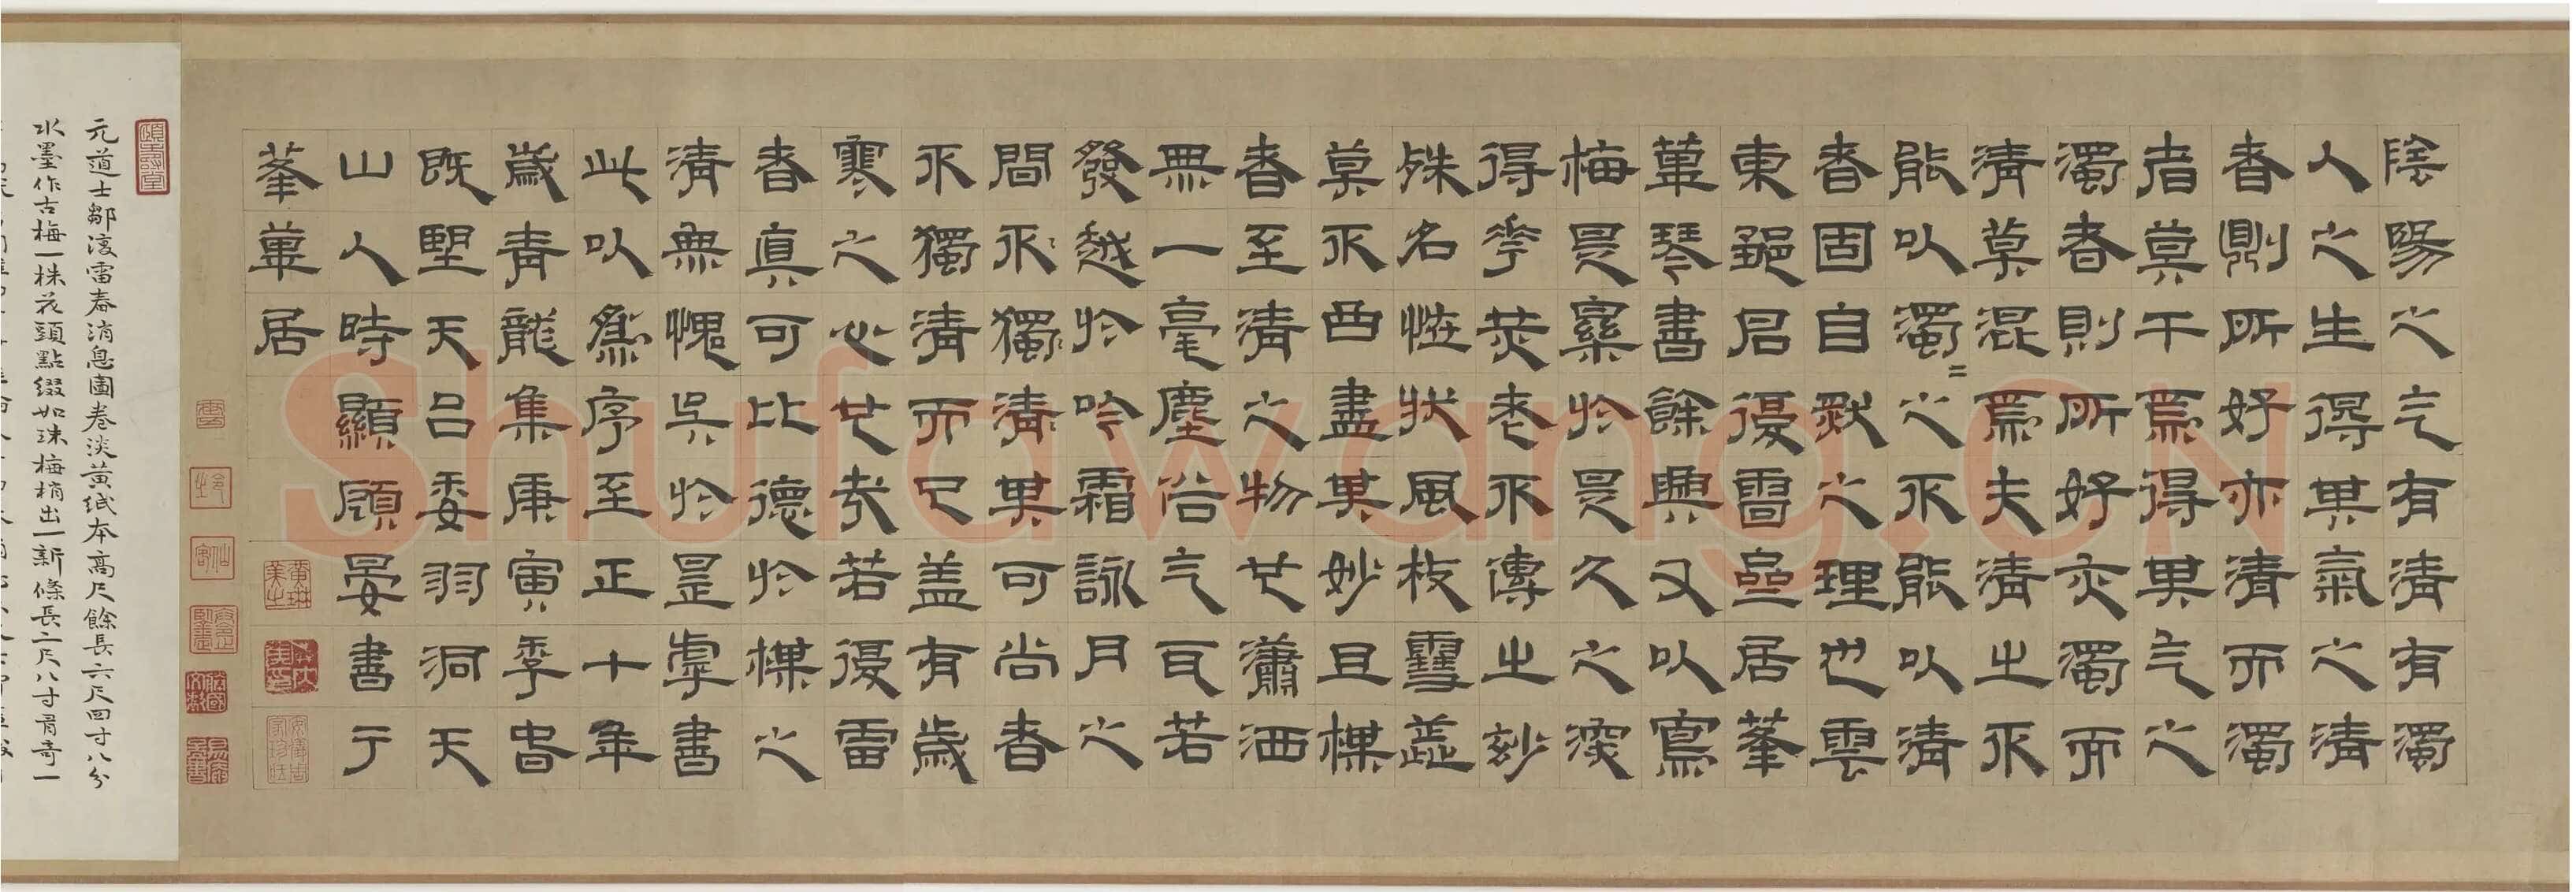 陰陽之气有清有濁
人之生得其氣之清
者則所好亦清而濁
者莫干焉得其气之
濁者則所好亦濁而
清莫混焉夫清之不
能以濁=之不能以清
者固自然之理也雲
東君復雷邑居蓬
蓽琴書餘興又以寫
梅是寮於是久之深
得華炗老不傳之妙
殊名性状風枝雪蕊
莫不盡其妙且楳
者至清之物也瀟洒
無一毫塵俗气宜若
發越於吟霜詠月之
間不獨清其可尚者
不獨清而已盖有歲
寒之心也哉若復雷
者真可比德於楳之
清無愧矣於是虖書
此以爲序至正十年
歲青龍集庚寅季春
既望天台委羽洞天
山人時顯顧晏書于
蓬蓽居
元道士鄒復雷春消息圖卷淡黃紙本高尺餘長六尺四寸八分
水墨作古梅一株花頭點綴如珠梅梢出一新條長二尺八寸有奇一
Shufawang.CN